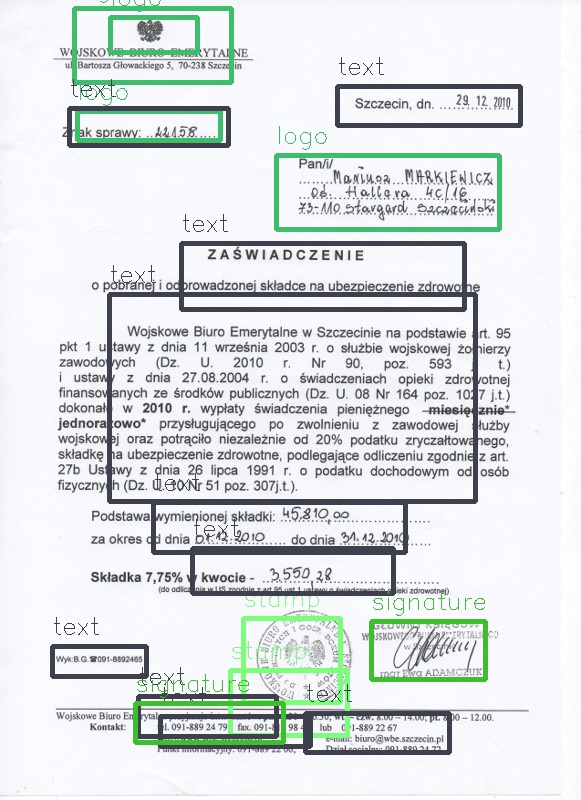 logo
logo
WOJSKOWE BIURO EMERYTALNE
ul. Bartosza Głowackiego 5, 70-238 Szczecin
text
Szczecin, dn. 29.12.2010.
text
logo
Znak sprawy: 22158
logo
Pan/i/
Mariusz MARKIEWICZ
Oś. Hallera 4c/16
73-110 Stargard Szczeciński
text
ZAŚWIADCZENIE
text
o pobranej i odprowadzonej składce na ubezpieczenie zdrowotne
Wojskowe Biuro Emerytalne w Szczecinie na podstawie art. 95
pkt 1 ustawy z dnia 11 września 2003 r. o służbie wojskowej żołnierzy
zawodowych (Dz. U. 2010 r. Nr 90, poz. 593 j t.)
i ustawy z dnia 27.08.2004 r. o świadczeniach opieki zdrowotnej
finansowanych ze środków publicznych (Dz. U. 08 Nr 164 poz. 1027 j.t.)
dokonało w 2010 r. wypłaty świadczenia pieniężnego miesięcznie*
jednorazowo* przysługującego po zwolnieniu z zawodowej służby
wojskowej oraz potrąciło niezależnie od 20% podatku zryczałtowanego,
składkę na ubezpieczenie zdrowotne, podlegające odliczeniu zgodnie z art.
27b Ustawy z dnia 26 lipca 1991 r. o podatku dochodowym od osób
fizycznych (Dz. U. 10 Nr 51 poz. 307j.t.).
text
Podstawa wymienionej składki: 45.810,00
text
za okres od dnia 01.12.2010 do dnia 31.12.2010
Składka 7,75% w kwocie - 3.550,28
(do odliczenia w US zgodnie z art 95 ust 1 ustawy o świadczeniach opieki zdrowotnej)
stamp
signature
GŁÓWNY KSIĘGOWY
WOJSKOWEGO BIURA EMERYTALNEGO
mgr Ewa ADAMCZUK
text
Wyk:B.G.☎091-8892465
stamp
text
signature
text
Wojskowe Biuro Emerytalne 8.00 – 14.00, pt. 8.00 – 12.00.
Kontakt: tel. 091-889 24 79 fax. 091-8 lub 091-889 22 67
e-mail: biuro@wbe.szczecin.pl
Punkt informacyjny: 091-889 22 66, Dział socjalny: 091-889 24 72